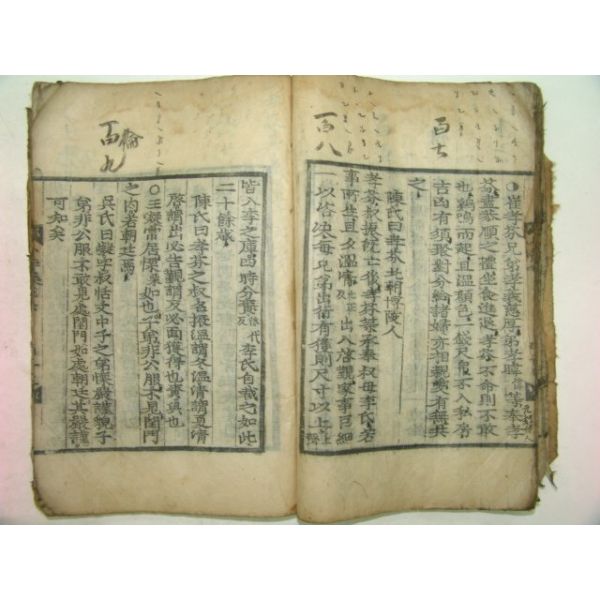 百七
○崔孝芬兄弟孝義慈厚弟孝暐等奉孝
芬盡恭順之禮坐食進退孝芬不命則不敢
也鷄鳴而起且溫顔色一錢尺帛不入私房
吉凶有須聚對分給諸婦亦相親愛有無共
之
陳氏曰孝芬北朝博陵人
百八
孝芬叔振旣亡後孝芬等承奉叔母李氏若
事所生旦夕溫凊出入啓覲家事巨細
一以咨決每兄弟出行有獲則尺寸以上
皆入李之庫四時分賚李氏自裁之如此
二十餘歲
百九
陳氏曰孝芬之叔名振溫謂冬溫凊謂夏凊
啓謂出必告覲謂反必面獲得也賚與也
○王凝常居慄如也子弟非公服不見閨門
之內若朝廷焉
吳氏曰凝字叔恬文中子之弟慄嚴謹貌子
弟非公服不敢見處閨門如處朝廷其嚴謹
可知矣